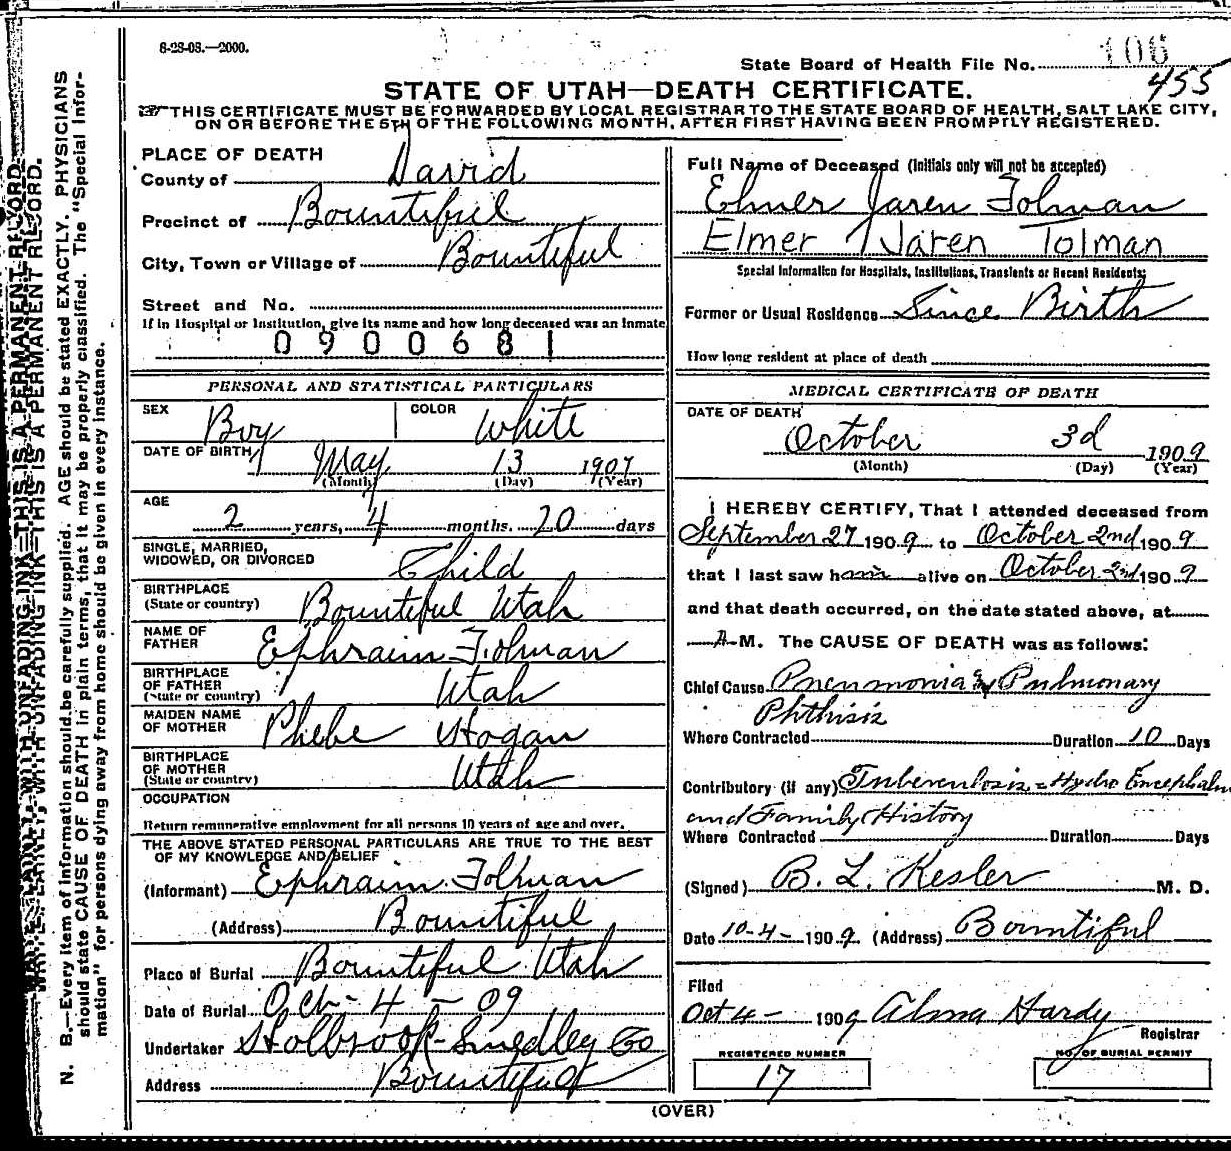 6-28-08.—2000.
106
State Board of Health File No.
455
STATE OF UTAH—DEATH CERTIFICATE.
THIS CERTIFICATE MUST BE FORWARDED BY LOCAL REGISTRAR TO THE STATE BOARD OF HEALTH, SALT LAKE CITY,
ON OR BEFORE THE 5TH OF THE FOLLOWING MONTH, AFTER FIRST HAVING BEEN PROMPTLY REGISTERED.
PLACE OF DEATH
County of David
Precinct of Bountiful
City, Town or Village of Bountiful
Street and No.
If in Hospital or Institution, give its name and how long deceased was an Inmate
0900681
PERSONAL AND STATISTICAL PARTICULARS
SEX Boy COLOR White
DATE OF BIRTH May 13 1907
(Month) (Day) (Year)
AGE
2 years, 4 months. 20 days
SINGLE, MARRIED,
WIDOWED, OR DIVORCED Child
BIRTHPLACE
(State or country) Bountiful Utah
NAME OF
FATHER Ephraim Tolman
BIRTHPLACE
OF FATHER
(State or country) Utah
MAIDEN NAME
OF MOTHER Phebe Hogan
BIRTHPLACE
OF MOTHER
(State or country) Utah
OCCUPATION
Return remunerative employment for all persons 10 years of age and over.
THE ABOVE STATED PERSONAL PARTICULARS ARE TRUE TO THE BEST
OF MY KNOWLEDGE AND BELIEF
(Informant) Ephraim Tolman
(Address) Bountiful
Place of Burial Bountiful Utah
Date of Burial Oct-4-09
Undertaker Holbrook-Smedley Co
Address Bountiful
Full Name of Deceased (Initials only will not be accepted)
Elmer Jaren Tolman
Elmer Jaren Tolman
Special Information for Hospitals, Institutions, Transients or Recent Residents:
Former or Usual Residence Since Birth
How long resident at place of death
MEDICAL CERTIFICATE OF DEATH
DATE OF DEATH
October 3d 1909
(Month) (Day) (Year)
I HEREBY CERTIFY, That I attended deceased from
September 27 1909 to October 2nd 1909
that I last saw him alive on October 2nd 1909
and that death occurred, on the date stated above, at
A M. The CAUSE OF DEATH was as follows:
Chief Cause Pneumonia & Pulmonary
Phthisis
Where Contracted Duration 10 Days
Contributory (if any) Tuberculosis = Hydro Encephalu
and Family History
Where Contracted Duration Days
(Signed) B. L. Kesler M. D.
Date 10-4- 1909 (Address) Bountiful
Filed
Oct 4- 1909 Alma Hardy
Registrar
REGISTERED NUMBER
17
NO. OF BURIAL PERMIT
(OVER)
WRITE PLAINLY, WITH UNFADING INK—THIS IS A PERMANENT RECORD.
N. B.—Every item of information should be carefully supplied. AGE should be stated EXACTLY. PHYSICIANS
should state CAUSE OF DEATH in plain terms, that it may be properly classified. The "Special Infor-
mation" for persons dying away from home should be given in every instance.